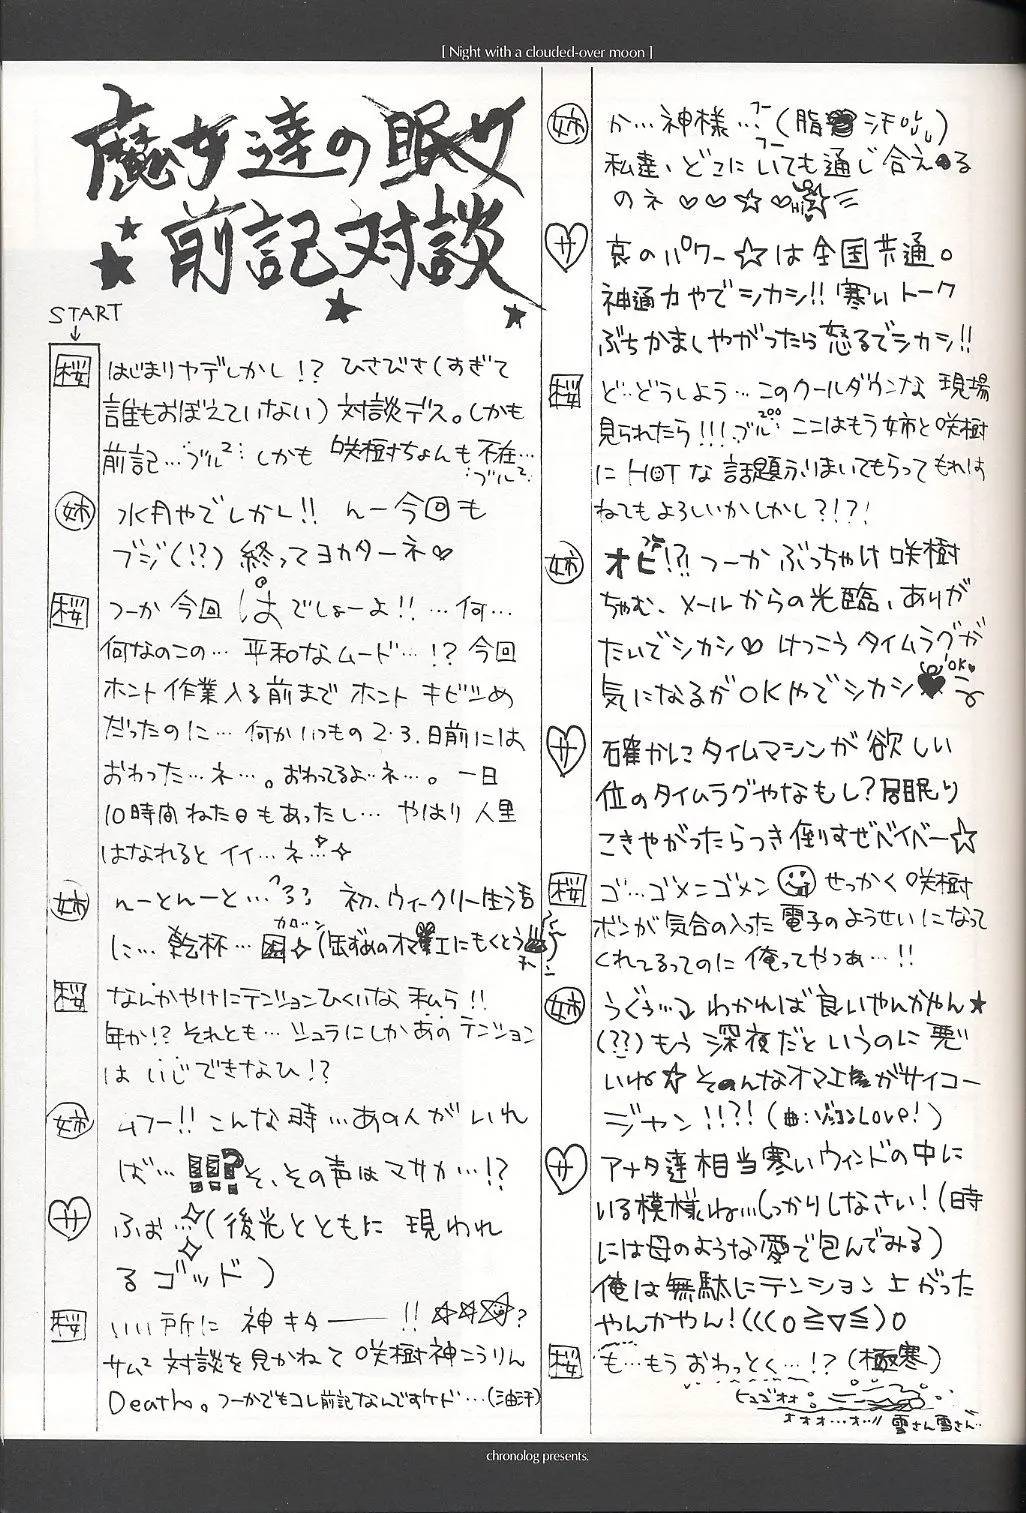 [ Night with a clouded-over moon ]
魔女達の眠り
前記対談
START
桜 はじまりヤデしかし!? ひさびさ(すぎて
誰もおぼえていない) 対談デス。しかも
前記…ブル² しかも 咲樹ちょんも不在…
ブル²
姉 水月やでしかし!! んー今回も
ブジ(!?) 終ってヨカターネ♡
桜 つーか 今回はでしょーよ!! …何…
何なのこの… 平和なムード…!? 今回
ホント作業入る前まで ホント キビツめ
だったのに… 何かいつもの2・3.日前には
おわった…ネ…。おわってるよ…ネ…。一日
10時間ねた日もあったし… やはり 人里
はなれるとイイ…ネ…
姉 んーとんーと… 初、ウィークリー生活
に… 乾杯…
カローン
桜 なんかやけにテンションひくいな 私ら!!
年か!? それとも… シュラにしかあのテンション
は いじできなひ!?
姉 ムフー!! こんな時…あの人がいれ
ば… !!!? そ、その声はマサカ…!?
サ ふぉ…(後光とともに 現われ
るゴッド)
桜 いい所に 神キター――!! ☆☆☆?
サム² 対談を見かねて咲樹神こうりん
Death。つーかでもコレ前記なんですケド…(油汗)
姉 か…神様…(脂汗)
フー
フー
私達、どこにいても通じ合える
のネ ♡♡☆♡
Hi
サ 哀のパワー☆は全国共通。
神通力やでシカシ!! 寒いトーク
ぶちかましやがったら怒るでシカシ!!
桜 ど…どうしよう…このクールダウンな 現場
見られたら!!! ブル²⁰⁰ ここはもう姉と咲樹
に HOTな話題ふりまいてもらってもれは
ねてもよろしいかしかし?!?!
姉 オビ!?! つーか ぶっちゃけ 咲樹
ちゃむ、メールからの光臨、ありが
たいでシカシ♡ けっこうタイムラグが
気になるがOKやでシカシ
OK♥
サ 確かにタイムマシンが欲しい
位のタイムラグやなもし? 居眠り
こきやがったらつき倒すぜベイベー☆
桜 ゴ…ゴメニゴメン せっかく咲樹
ボンが気合の入った電子のようせいになって
くれてるってのに 俺ってやつぁ…!!
姉 うぐぅ… わかれば良いやんかやん★
(??)もう深夜だというのに悪
いね☆ そのんなオマエがサイコー
ジャン!!?! (曲:ゾッコンLOVE!)
サ アナタ達相当寒いウィンドの中に
いる模様ね…しっかりしなさい!(時
には母のような愛で包んでみる)
俺は無駄にテンション上がった
やんかやん!(((o≧▽≦)o
桜 も…もうおわっとく…!? (極寒)
ヒュゴオオ
オオオ…オ…// 雪さん雪さん…
chronolog presents.